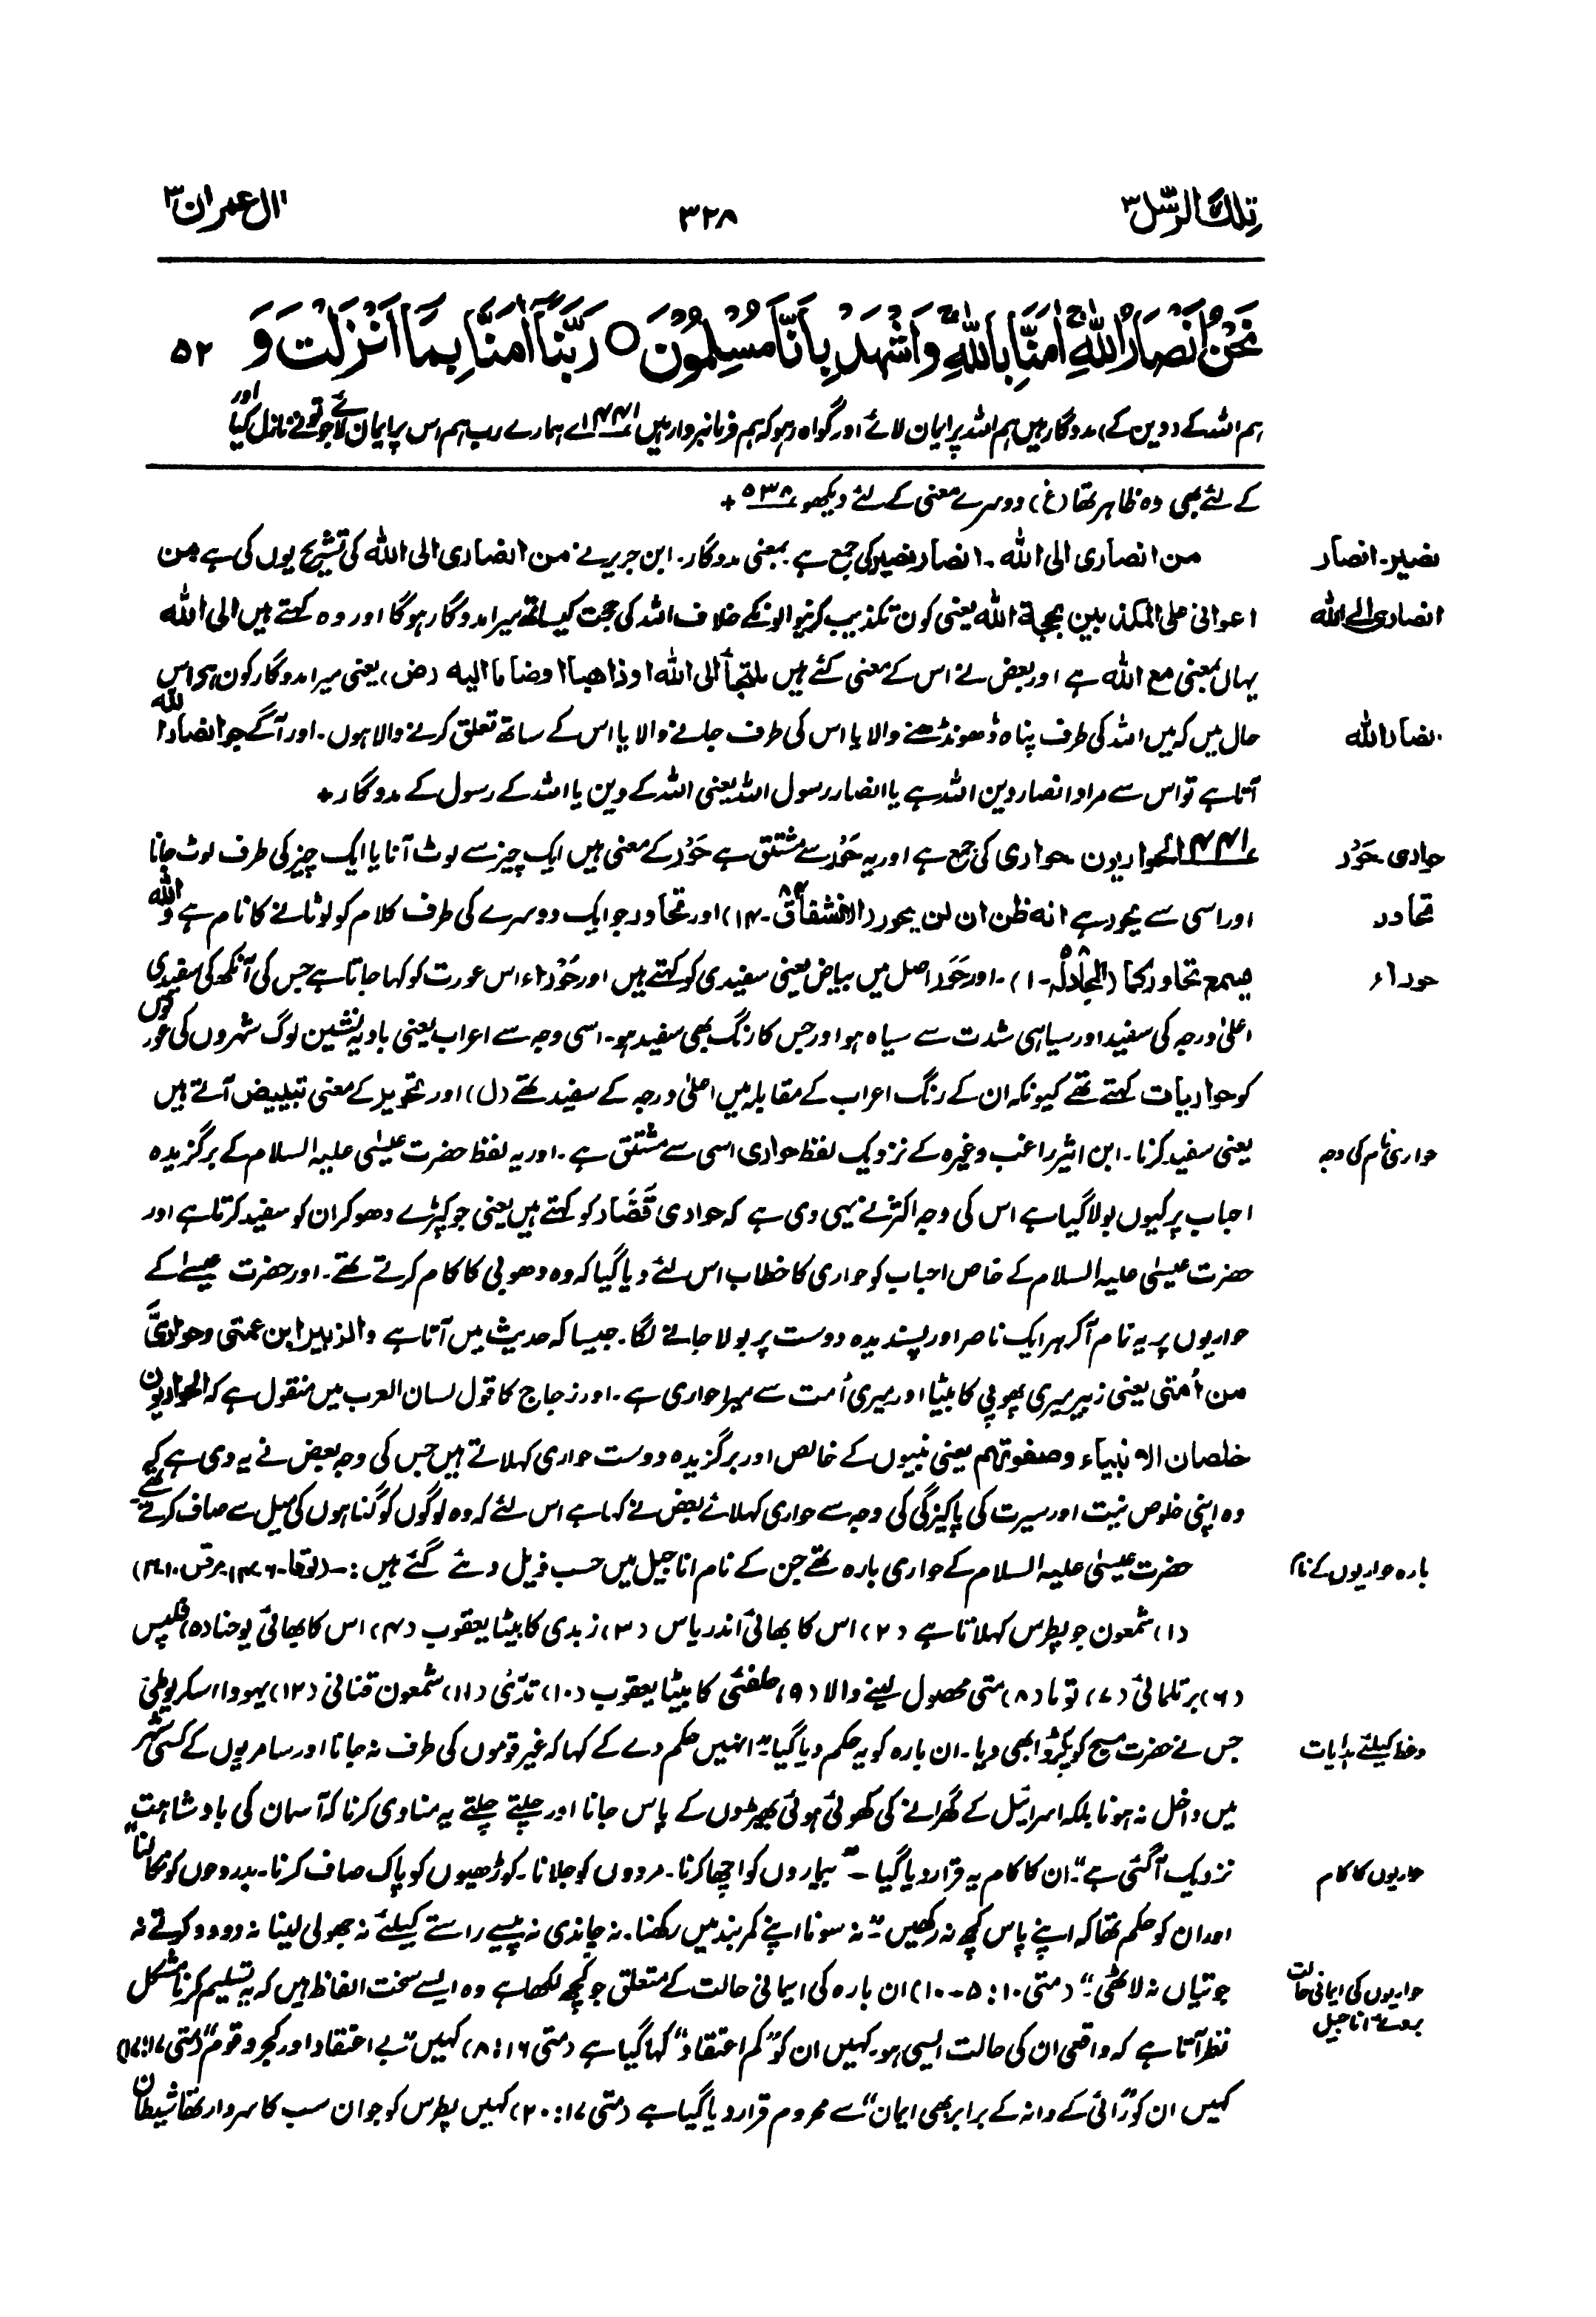 تلك الرّسل ٣
٣٢٨
اٰل عمران ٣
نَحْنُ اَنْصَارُ اللّٰهِ ۚ اٰمَنَّا بِاللّٰهِ ۚ وَاشْهَدْ بِاَنَّا مُسْلِمُوْنَ ○ رَبَّنَاۤ اٰمَنَّا بِمَاۤ اَنْزَلْتَ وَ ٥٢
ہم اللہ کے (دین کے) مددگار ہیں ہم اللہ پر ایمان لائے اور گواہ رہو کہ ہم فرمانبردار ہیں ۴۴۱ اے ہمارے رب ہم اس پر ایمان لائے جو تو نے نازل کیا اور
کے لئے بھی وہ ظاہر تھا (غ) دوسرے معنی کے لئے دیکھو ۵۳۸ +
نصیر۔ انصار
من انصاری الی اللہ۔ انصار نصیر کی جمع ہے بمعنی مددگار۔ ابن جریر نے من انصاری الی اللہ کی تشریح یوں کی ہے من
انصاری الی اللہ
اعوانی علی المکذبین بحجۃ اللہ یعنی کون تکذیب کرنیوالونکے خلاف اللہ کی حجت کیساتھ میرا مددگار ہوگا اور وہ کہتے ہیں الی اللہ
یہاں بمعنی مع اللہ ہے اور بعض نے اس کے معنی کئے ہیں ملتجأ الی اللہ او ذاھبا او ضاما الیہ (ض) یعنی میرا مددگار کون ہے اس
انصار اللہ
حال میں کہ میں اللہ کی طرف پناہ ڈھونڈھنے والا یا اس کی طرف جانے والا یا اس کے ساتھ تعلق کرنے والا ہوں۔ اور آگے جو انصار اللہ
آتا ہے تو اس سے مراد انصار دین اللہ ہے یا انصار رسول اللہ یعنی اللہ کے دین یا اللہ کے رسول کے مددگار +
حواری۔ حَوْر
۴۴۱ الحواریون۔ حواری کی جمع ہے اور یہ حَوْر سے مشتق ہے حَوْر کے معنی ہیں ایک چیز سے لوٹ آنا یا ایک چیز کی طرف لوٹ جانا
تحاور
اور اسی سے یحور ہے انہ ظن ان لن یحور (الانشقاق ۸۴۔۱۴) اور تحاور جو ایک دوسرے کی طرف کلام کو لوٹانے کا نام ہے واللہ
حوراء
یسمع تحاورکما (المجادلۃ ۵۸۔۱)۔ اور حَوَر اصل میں بیاض یعنی سفیدی کو کہتے ہیں اور حَوْراء اس عورت کو کہا جاتا ہے جس کی آنکھ کی سفیدی
اعلیٰ درجہ کی سفید اور سیاہی شدت سے سیاہ ہو اور جس کا رنگ بھی سفید ہو۔ اسی وجہ سے اعراب یعنی بادیہ نشین لوگ شہروں کی عورتوں
کو حواریات کہتے تھے کیونکہ ان کے رنگ اعراب کے مقابلہ میں اعلیٰ درجہ کے سفید تھے (ل) اور تحویر کے معنی تبییض آتے ہیں
حواری نام کی وجہ
یعنی سفید کرنا۔ ابن اثیر راغب وغیرہ کے نزدیک لفظ حواری اسی سے مشتق ہے۔ اور یہ لفظ حضرت عیسیٰ علیہ السلام کے برگزیدہ
احباب پر کیوں بولا گیا ہے اس کی وجہ اکثر نے یہی دی ہے کہ حواری قَصَّار کو کہتے ہیں یعنی جو کپڑے دھو کر ان کو سفید کرتا ہے اور
حضرت عیسیٰ علیہ السلام کے خاص احباب کو حواری کا خطاب اس لئے دیا گیا کہ وہ دھوبی کا کام کرتے تھے۔ اور حضرت عیسےٰ کے
حواریوں پر یہ نام آکر ہر ایک ناصر اور پسندیدہ دوست پر بولا جانے لگا۔ جیسا کہ حدیث میں آتا ہے والزبیر ابن عمتی وحواریَّ
من اُمتی یعنی زبیر میری پھوپی کا بیٹا اور میری اُمت سے میرا حواری ہے۔ اور زجاج کا قول لسان العرب میں منقول ہے کہ الحواریون
خلصان الانبیاء وصفوتھم یعنی نبیوں کے خالص اور برگزیدہ دوست حواری کہلاتے ہیں جس کی وجہ بعض نے یہ دی ہے کہ
وہ اپنی خلوص نیت اور سیرت کی پاکیزگی کی وجہ سے حواری کہلائے بعض نے کہا ہے اس لئے کہ وہ لوگوں کو گناہوں کی میل سے صاف کرتے تھے۔
بارہ حواریوں کے نام
حضرت عیسیٰ علیہ السلام کے حواری بارہ تھے جن کے نام اناجیل میں حسب ذیل دئے گئے ہیں :۔ (لوقا
(۱) شمعون جو پطرس کہلاتا ہے (۲) اس کا بھائی اندریاس (۳) زبدی کا بیٹا یعقوب (۴) اس کا بھائی یوحنا (۵) فلپس
(۶) برتلمائی (۷) توما (۸) متی محصول لینے والا (۹) حلفئی کا بیٹا یعقوب (۱۰) تدّئی (۱۱) شمعون قنانی (۱۲) یہودا اسکریوطی
وعظ کیلئے ہدایات
جس نے حضرت مسیح کو پکڑوا بھی دیا۔ ان بارہ کو یہ حکم دیا گیا "انہیں حکم دے کے کہا کہ غیر قوموں کی طرف نہ جانا اور سامریوں کے کسی شہر
میں داخل نہ ہونا بلکہ اسرائیل کے گھرانے کی کھوئی ہوئی بھیڑوں کے پاس جانا اور چلتے چلتے یہ منادی کرنا کہ آسمان کی بادشاہت
حواریوں کا کام
نزدیک آگئی ہے"۔ ان کا کام یہ قرار دیا گیا۔ "بیماروں کو اچھا کرنا۔ مردوں کو جلانا۔ کوڑھیوں کو پاک صاف کرنا۔ بدروحوں کو نکالنا"
اور ان کو حکم تھا کہ اپنے پاس کچھ نہ رکھیں "نہ سونا اپنے کمربند میں رکھنا۔ نہ چاندی نہ پیسے راستے کیلئے نہ جھولی لینا نہ دو دو کرتے نہ
حواریوں کی ایمانی حالت بروئے اناجیل
جوتیاں نہ لاٹھی"۔ (متی ۱۰ : ۵۔۱۰) ان بارہ کی ایمانی حالت کے متعلق جو کچھ لکھا ہے وہ ایسے سخت الفاظ ہیں کہ یہ تسلیم کرنا مشکل
نظر آتا ہے کہ واقعی ان کی حالت ایسی ہو۔ کہیں ان کو "کم اعتقاد" کہا گیا ہے (متی ۱۶ : ۸) کہیں "بے اعتقاد اور کجرو قوم" (متی ۱۷:۱۷)
کہیں ان کو "رائی کے دانہ کے برابر بھی ایمان" سے محروم قرار دیا گیا ہے (متی ۱۷ : ۲۰) کہیں پطرس کو جو ان سب کا سردار تھا شیطان